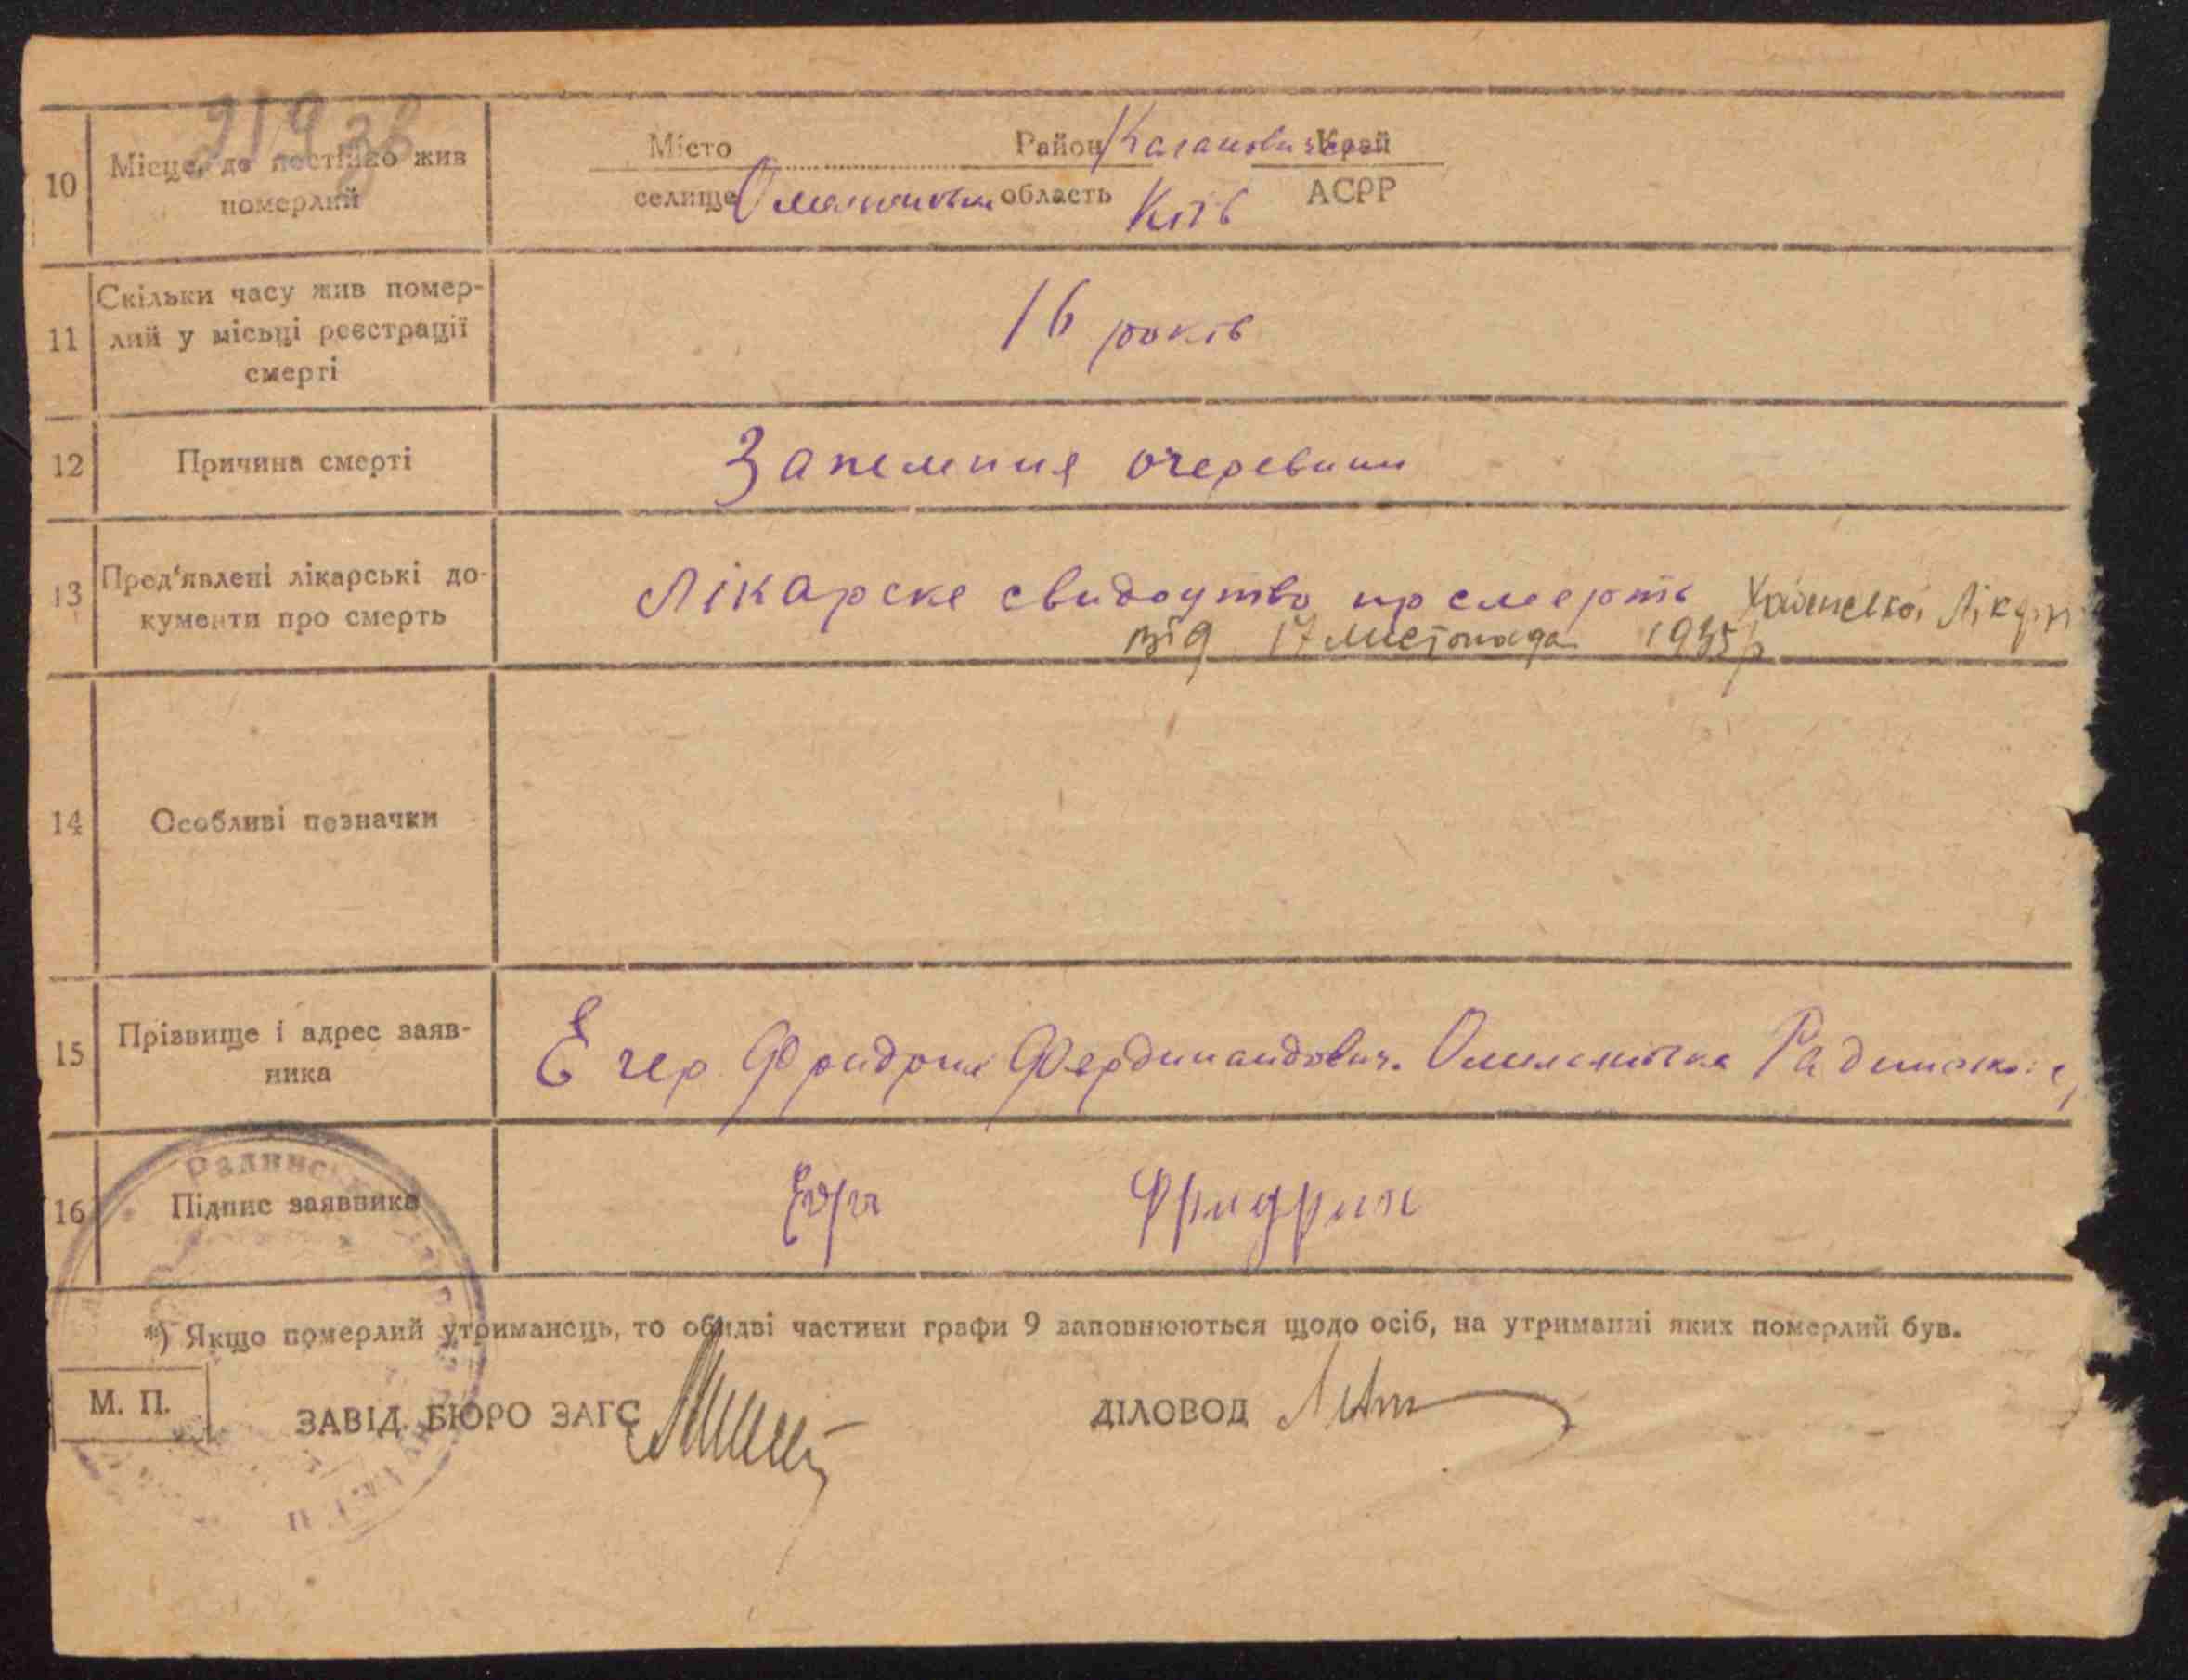 10 Місце, де постійно жив
померлий
Місто Район Каганович Край
селище область Київ АСРР
11 Скільки часу жив помер-
лий у місьці реєстрації
смерті
16 років
12 Причина смерті
Запемння очеревини
13 Пред'явлені лікарські до-
кументи про смерть
Лікарске свидоцтво пр смерть
від 17 листопада 1935 р
14 Особливі позначки
15 Прізвище і адрес заяв-
ника
Егер Фридрих Фердинандович.
16 Підпис заявника
Фридрих
*) Якщо померлий утриманець, то обидві частини графи 9 заповнюються щодо осіб, на утриманні яких померлий був.
М. П.
ЗАВІД. БЮРО ЗАГС
ДІЛОВОД